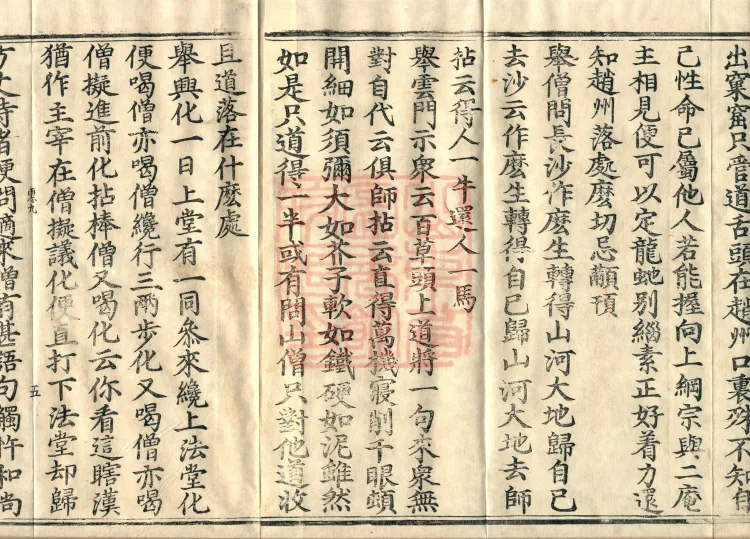 出窠窟只管道舌頭在趙州口裏殊不知自
己性命已屬他人若能握向上綱宗與二庵
主相見便可以定龍虵別緇素正好着力還
知趙州落處麽切忌顢頇
舉僧問長沙作麽生轉得山河大地歸自己
去沙云作麽生轉得自己歸山河大地去師
拈云得人一牛還人一馬
舉雲門示衆云百草頭上道將一句來衆無
對自代云俱師拈云直得萬機寢削千眼頓
開細如須彌大如芥子軟如鐵硬如泥雖然
如是只道得一半或有問山僧只對他道收
且道落在什麽處
舉興化一日上堂有一同參來纔上法堂化
便喝僧亦喝僧纔行三兩步化又喝僧亦喝
僧擬進前化拈棒僧又喝化云你看這瞎漢
猶作主宰在僧擬議化便直打下法堂却歸
五
方丈侍者便問適來僧有甚語句觸忤和尚